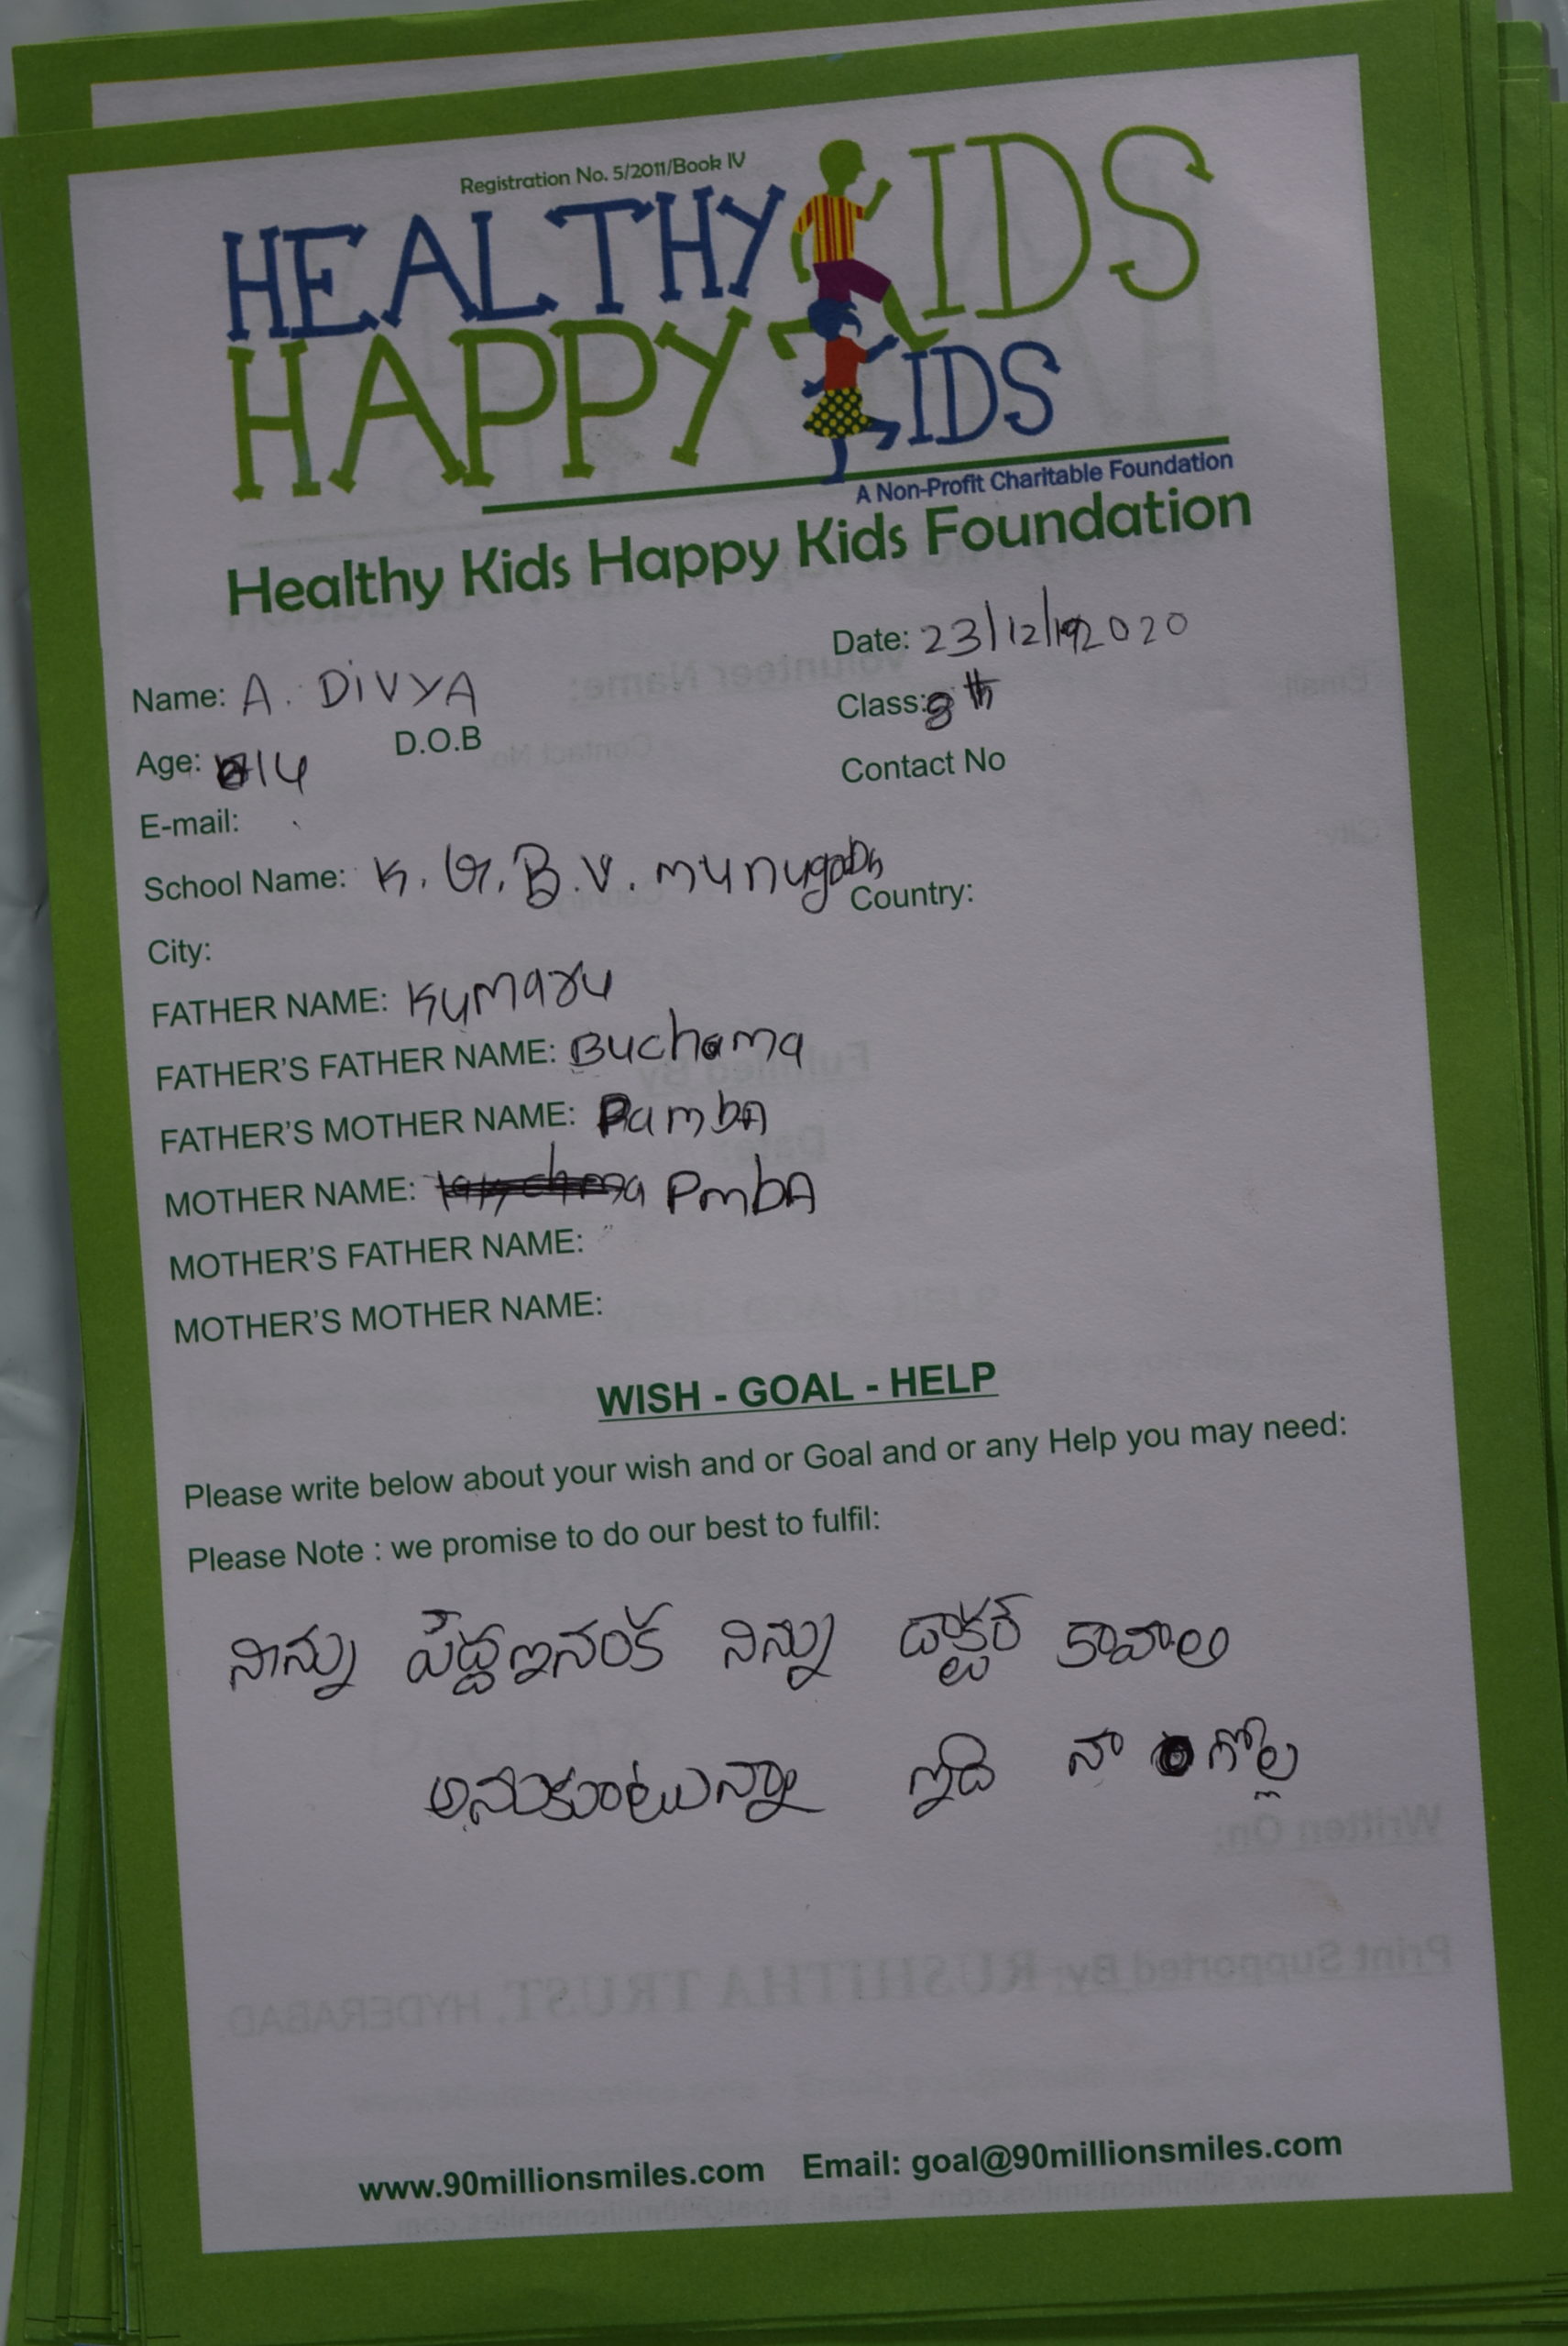 Registration No. 5/2011/Book IV
HEALTHY KIDS
HAPPY KIDS
A Non-Profit Charitable Foundation
Healthy Kids Happy Kids Foundation
Date: 23/12/2020
Name: A. DiVYA
Class: 8th
Age: 14 D.O.B
Contact No
E-mail:
School Name: K. G. B. V. munugodu
Country:
City:
FATHER NAME: Kumaru
FATHER'S FATHER NAME: Buchama
FATHER'S MOTHER NAME: Pamba
MOTHER NAME: PmbA
MOTHER'S FATHER NAME:
MOTHER'S MOTHER NAME:
WISH - GOAL - HELP
Please write below about your wish and or Goal and or any Help you may need:
Please Note : we promise to do our best to fulfil:
నిన్ను పెద్దఇనంక నిన్ను డాక్టర్ కావాల
అనుకుంటున్నా ఇది నా గోల్ల
www.90millionsmiles.com Email: goal@90millionsmiles.com